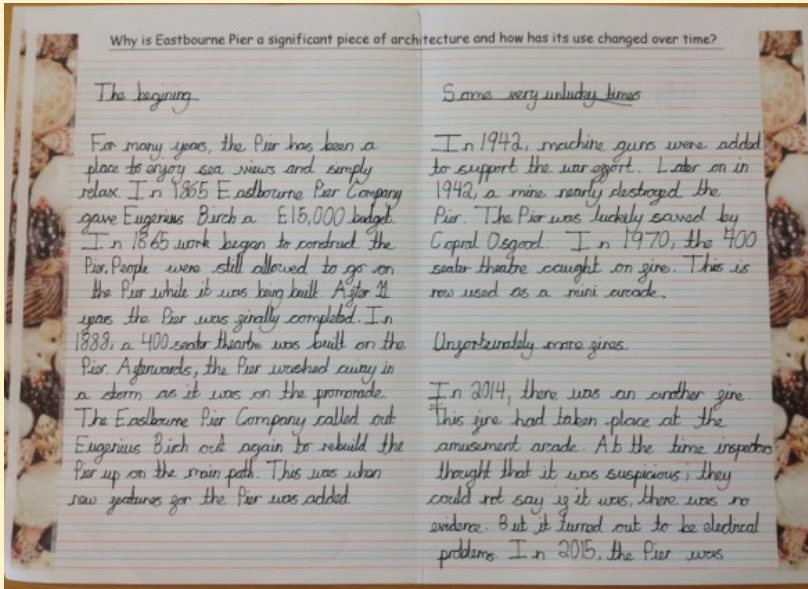 Why is Eastbourne Pier a significant piece of architecture and how has its use changed over time?
The begining
For many years, the Pier has been a
place to enjoy sea views and simply
relax. In 1865 Eastbourne Pier Company
gave Eugenius Birch a £15,000 budget.
In 1865 work began to construct the
Pier. People were still allowed to go on
the Pier while it was being built. After 11
years the Pier was finally completed. In
1888, a 400 seater theartre was built on the
Pier. Afterwards, the Pier washed away in
a storm as it was on the promonade.
The Eastbourne Pier Company called out
Eugenius Birch out again to rebuild the
Pier up on the main path. This was when
new features for the Pier was added
Some very unlucky times
In 1942, machine guns were added
to support the war effort. Later on in
1942, a mine nearly destroyed the
Pier. The Pier was luckely saved by
Copral Osgood. In 1970, the 400
seater theatre caught on fire. This is
now used as a mini arcade.
Unfortunately more fires.
In 2014, there was an another fire.
This fire had taken place at the
amusement arcade. At the time inspectors
thought that it was suspicious; they
could not say if it was, there was no
evidence. But it turned out to be electrical
problems. In 2015, the Pier was